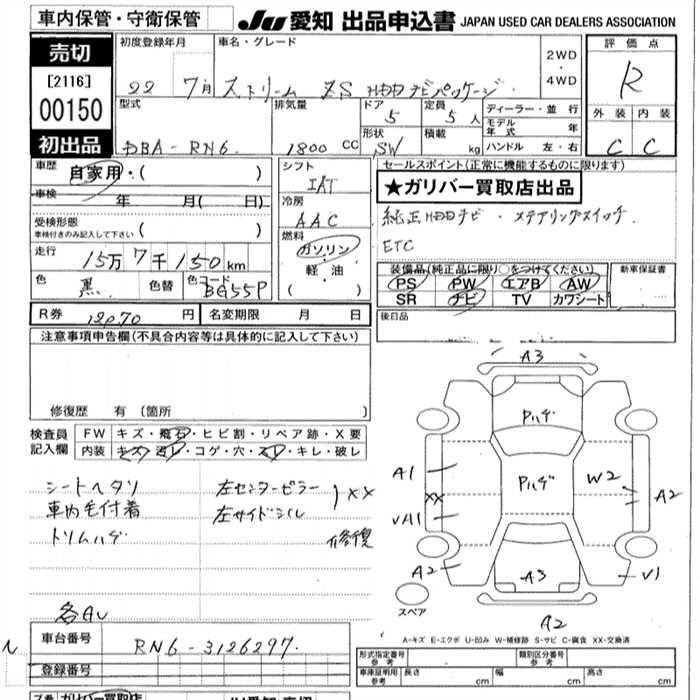 車内保管・守衛保管 JU 愛知 出品申込書 JAPAN USED CAR DEALERS ASSOCIATION
売切
[2116]
00150
初出品
初度登録年月 22 7月
車名・グレード ストリーム ZS HDDナビパッケージ
2WD・4WD
評価点 R
外装 内装
C C
型式 DBA-RN6
排気量 1800 CC
ドア 5
形状 SW
定員 5人
積載 kg
ディーラー・並行
モデル年式 年
ハンドル 左・右
車歴 自家用・( )
車検 年 月( 日)
受検形態
車検付きのみ記入して下さい ( )
走行 15万7千150km
色 黒 色替 色コード BG55P
シフト IAT
冷房 AAC
燃料 ガソリン・軽油・( )
セールスポイント(正常に機能するものに限ります)
★ガリバー買取店出品
純正HDDナビ・ステアリングスイッチ
ETC
装備品(純正品に限り○をつけてください)
PS PW エアB AW
SR ナビ TV カワシート
新車保証書
後日品
R券 12070円 名変期限 月 日
注意事項申告欄(不具合内容等は具体的に記入して下さい)
修復歴 有(箇所 )
検査員記入欄
FW キズ・飛石・ヒビ割・リペア跡・X要
内装 キズ・汚レ・コゲ・穴・スレ・キレ・破レ
シートヘタリ 左センターピラー
車内毛付着 左サイドシル )XX
トリムハゲ 修復
各AU
A3
Pハゲ
A1 Pハゲ W2
XX A2
VA1
A2 A3 V1
スペア
A2
A-キズ E-エクボ U-凹み W-補修跡 S-サビ C-腐食 XX-交換済
N
車台番号 RN6-3126297
登録番号
形式指定番号 参考 類別区分番号 参考
車庫証明用 参考 長さ cm 幅 cm 高さ cm
ガリバー買取店
JU愛知 売切